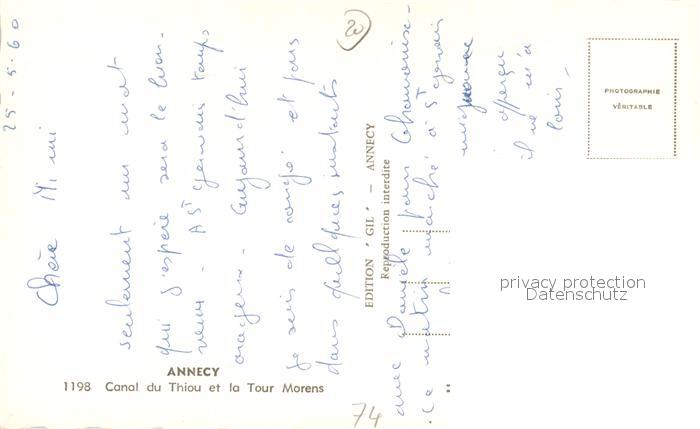 25-5-60
Chère Mimi
seulement un mot
qui j'espère sera le bien-
venu - A St Gervais temps
orageux - Aujourd'hui
je suis de congé et pars
dans quelques instants
avec Danièle pour Chamonix -
Ce matin marché à St Gervais
aperçu
il ne m'a
20
EDITION "GIL" - ANNECY
Reproduction interdite
PHOTOGRAPHIE
VÉRITABLE
ANNECY
1198 Canal du Thiou et la Tour Morens
74
privacy protection
Datenschutz